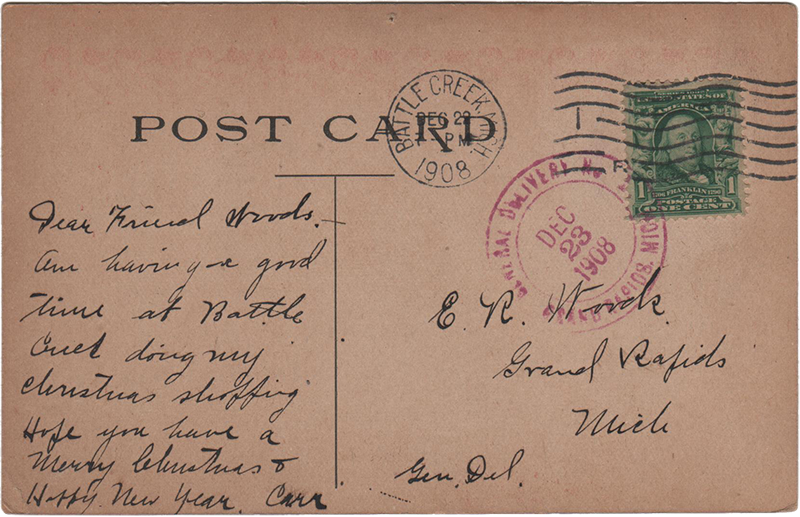 POST CARD
BATTLE CREEK, MICH.
DEC 22
PM
1908
GENERAL DELIVERY
DEC
23
1908
GRAND RAPIDS, MICH
SERIES 1902
UNITED STATES OF
AMERICA
1706 FRANKLIN 1790
1 POSTAGE 1
ONE CENT
Dear Friend Woods.—
Am having a good
time at Battle
Creek doing my
Christmas shopping
Hope you have a
Merry Christmas &
Happy New Year. Carr
E. R. Woods.
Grand Rapids
Mich
Gen. Del.